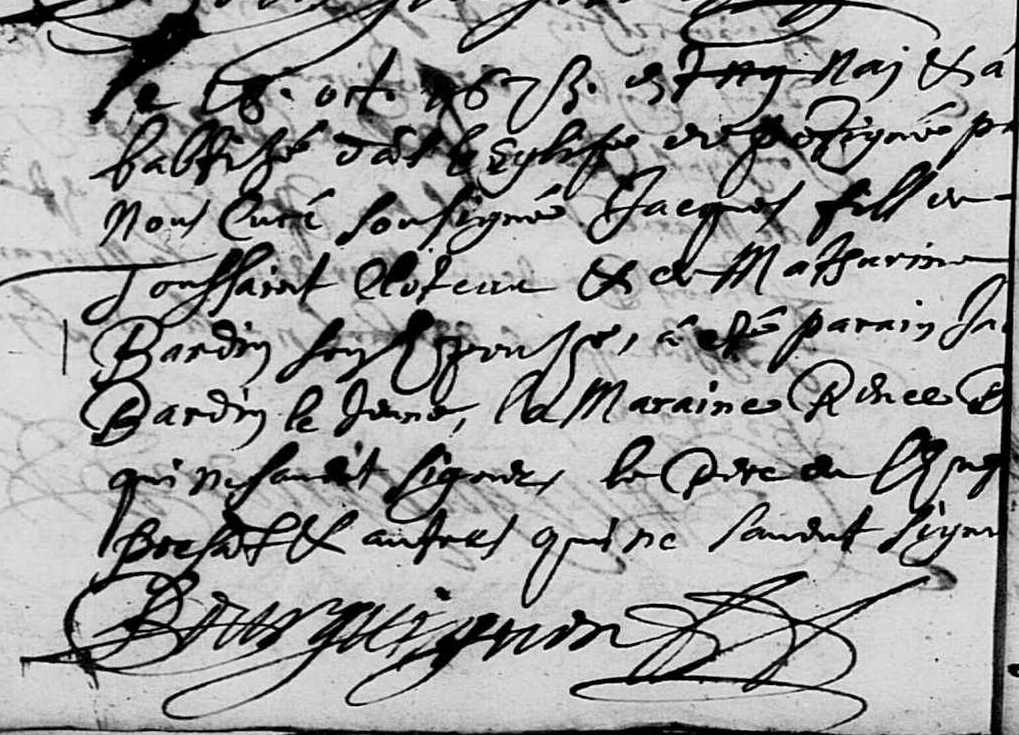 le 18. oct. 1673. naq & a
baptizé dās l'Eglise de p
nous Curé soussigné Jacques fill de
Toussaint & de Matharine
Bardin son Epouse, à esté parain Ja
Bardin le Jeune, la Maraine Renee B
qui ne savēt signer, le Pere
presāt & autres qui ne savent signer
Bourguignon